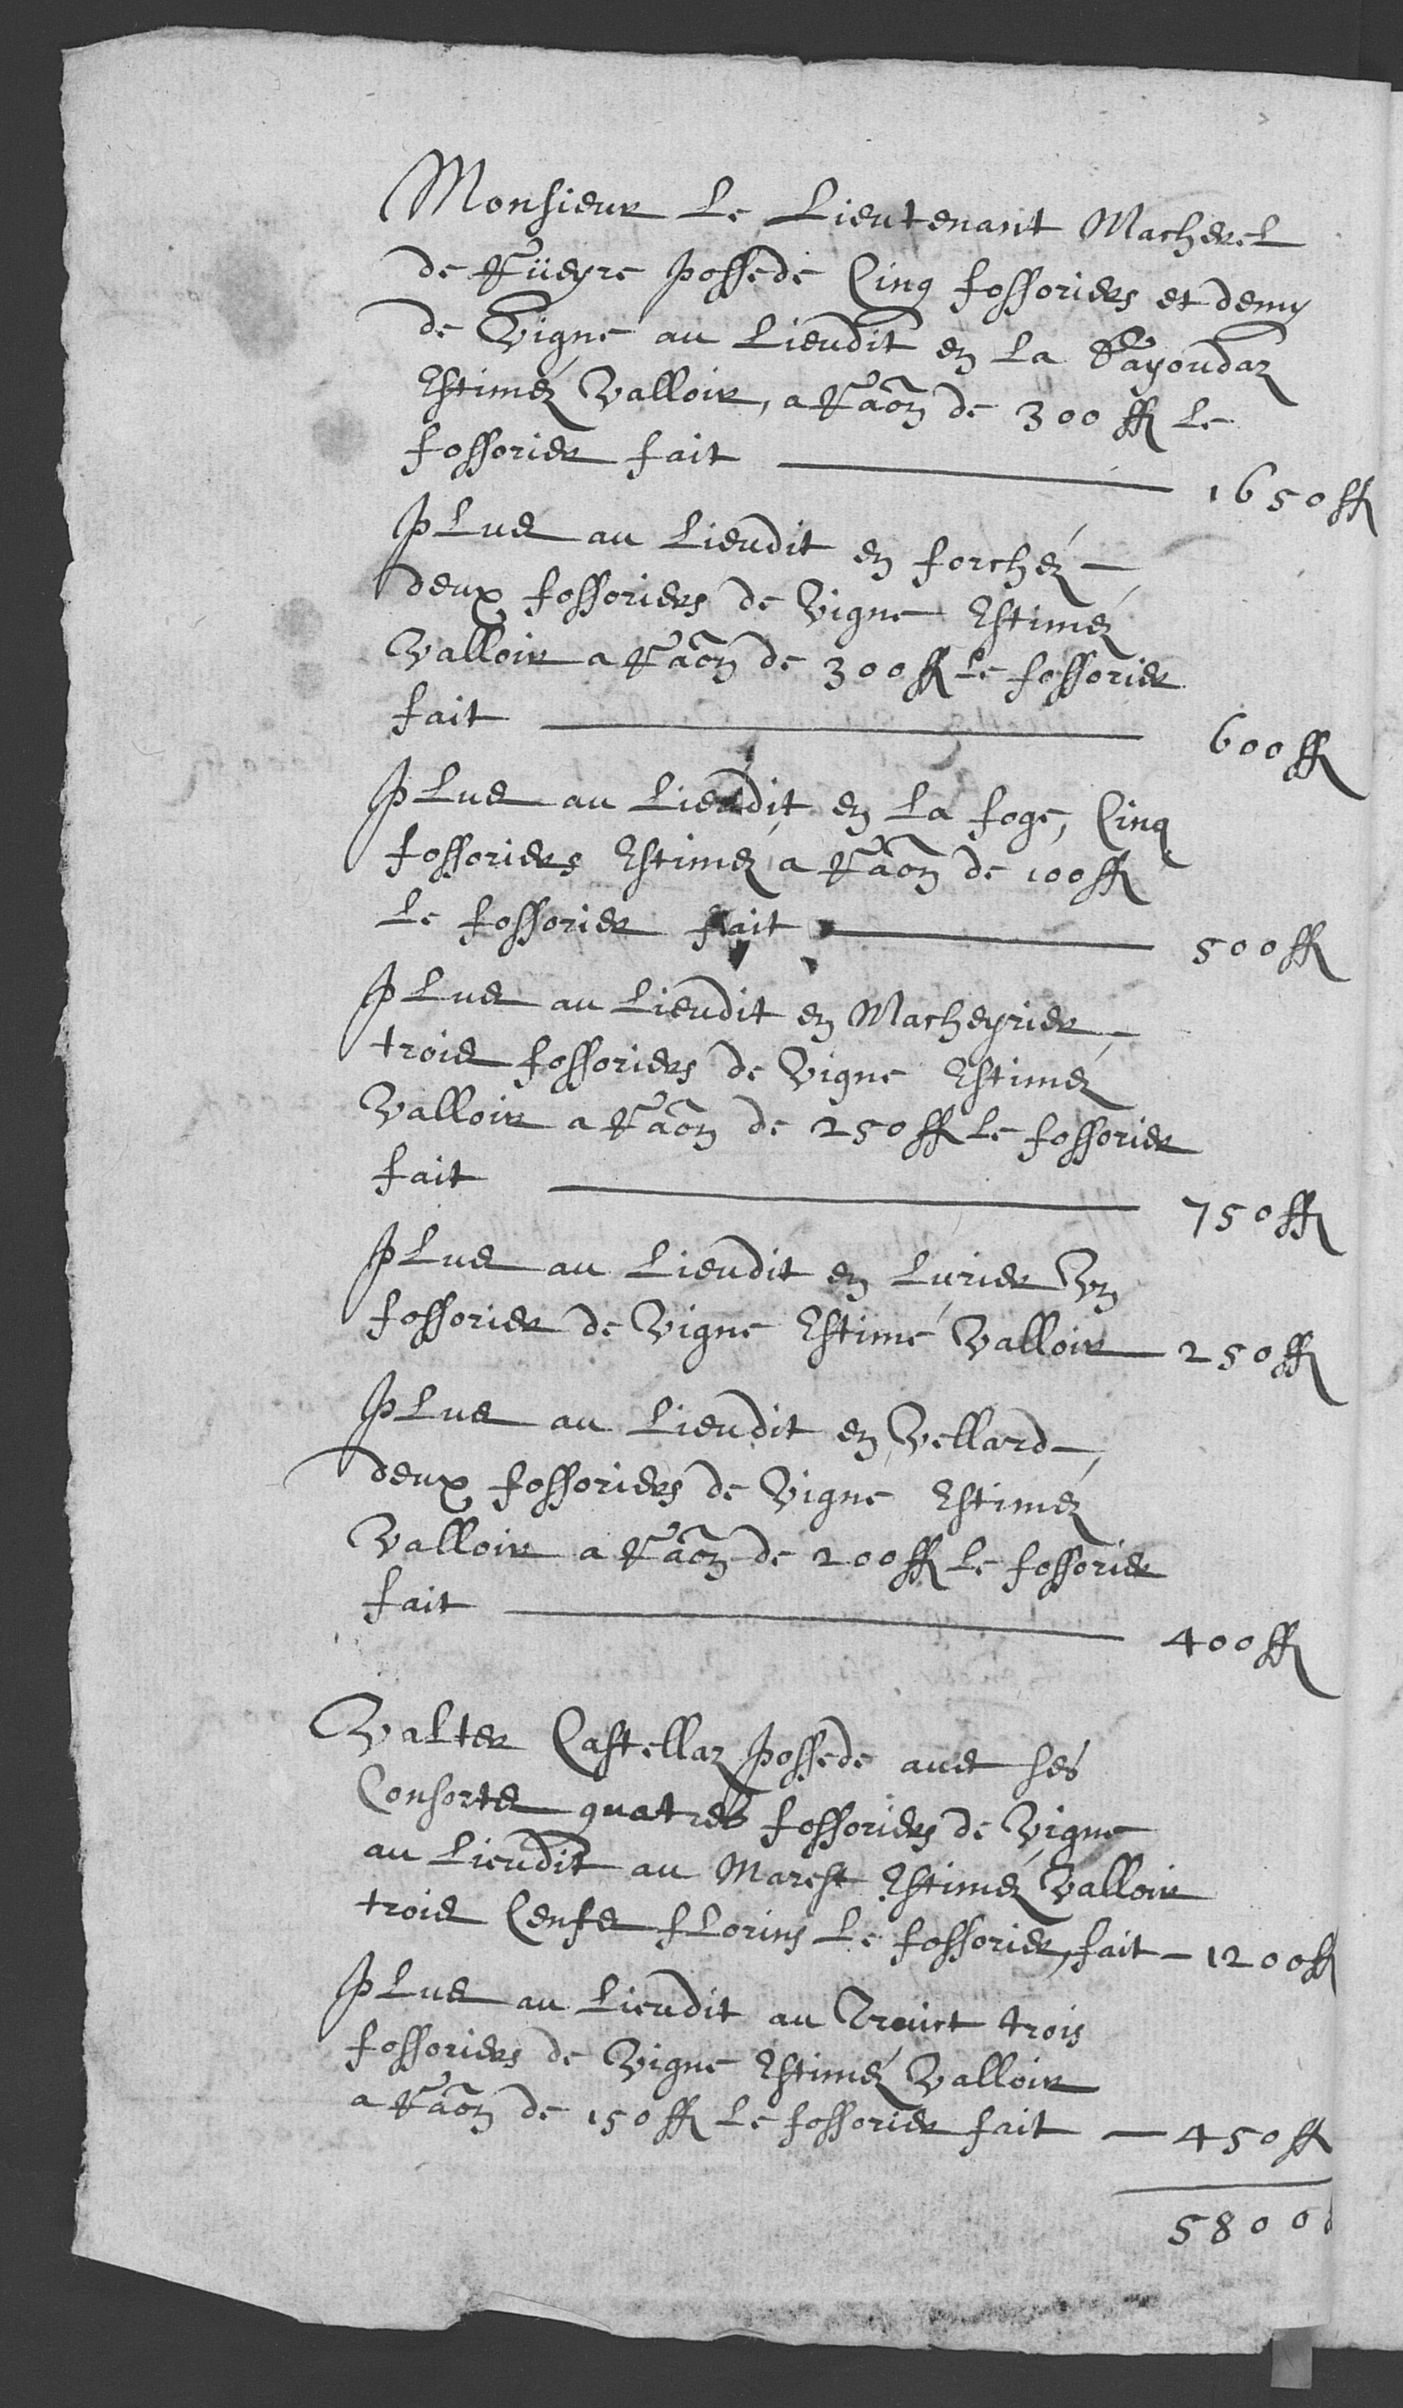 Monsieur Le Lieutenant Macherel
de Rüeyre possede Cinq fossoriers et demy
de Vigne au Lieudit en La Rayoudaz
Estimez Valloir, a Raõn de 300 ff Le
fossorier fait — 1650 ff
Plus au Lieudit en forchez
deux fossoriers de Vigne Estimez
Valloir a Raõn de 300 ff Le fossorier
fait — 600 ff
Plus au Lieudit en La foge, Cinq
fossoriers Estimez a Raõn de 100 ff
Le fossorier fait — 500 ff
Plus au Lieudit en Macheyrier
trois fossoriers de Vigne Estimez
Valloir a Raõn de 250 ff Le fossorier
fait — 750 ff
Plus au Lieudit en Lurier Vn
fossorier de Vigne Estimé Valloir — 250 ff
Plus au Lieudit en Vellard
deux fossoriers de Vigne Estimez
Valloir a Raõn de 200 ff Le fossorier
fait — 400 ff
Walter Castellaz possede auec ses
Consorts quatres fossoriers de Vigne
au Lieudit au Marest Estimez Valloir
trois Cents florins Le fossorier, fait — 1200 ff
Plus au Lieudit au trois
fossoriers de Vigne Estimez Valloir
a Raõn de 150 ff Le fossorier fait — 450 ff
5800